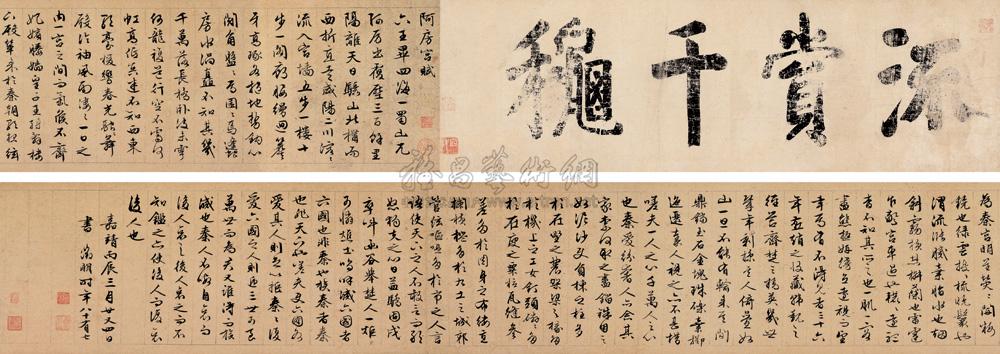 流賞千龝
阿房宮賦
六王畢四海一蜀山兀
阿房出覆壓三百餘里
隔離天日驪山北構而
西折直走咸陽二川溶溶
流入宮牆五步一樓十
步一閣廊腰縵迴簷
牙高啄各抱地勢鉤心
鬬角盤盤焉囷囷焉蜂
房水渦矗不知其幾
千萬落長橋臥波未雲
何龍複道行空不霽何
虹高低冥迷不知西東
歌臺暖響春光融融舞
殿冷袖風雨淒淒一日之
內一宮之間而氣候不齊
妃嬪媵嬙王子皇孫辭樓
下殿輦來於秦朝歌夜絃
為秦宮人明星熒熒開粧
鏡也綠雲擾擾梳曉鬟也
渭流漲膩棄脂水也煙
斜霧橫焚椒蘭也雷霆
乍驚宮車過也轆轆遠聽
杳不知其所之也一肌一容
盡態極妍縵立遠視而望
幸焉有不得見者三十六
年燕趙之收藏韓魏之
經營齊楚之精英幾世
幾年剽掠其人倚疊如
山一旦不能有輸來其間
鼎鐺玉石金塊珠礫棄擲
邐迤秦人視之亦不甚惜
嗟夫一人之心千萬人之心
也秦愛紛奢人亦念其
家奈何取之盡錙銖用之
如泥沙使負棟之柱多
於南畝之農夫架梁之椽多
於機上之工女釘頭磷磷多
於在庾之粟粒瓦縫參
差多於周身之帛縷直
欄橫檻多於九土之城郭
管絃嘔啞多於市人之言
語使天下之人不敢言而敢
怒獨夫之心日益驕固戍
卒叫函谷舉楚人一炬
可憐焦土嗚呼滅六國者
六國也非秦也族秦者秦
也非天下也嗟夫使六國各
愛其人則足以拒秦秦復
愛六國之人則遞三世可至
萬世而為君誰得而族
滅也秦人不暇自哀而
後人哀之後人哀之而不
知鑑之亦使後人而復哀
後人也
嘉靖丙辰三月廿又四日
書 徵明時年八十有七